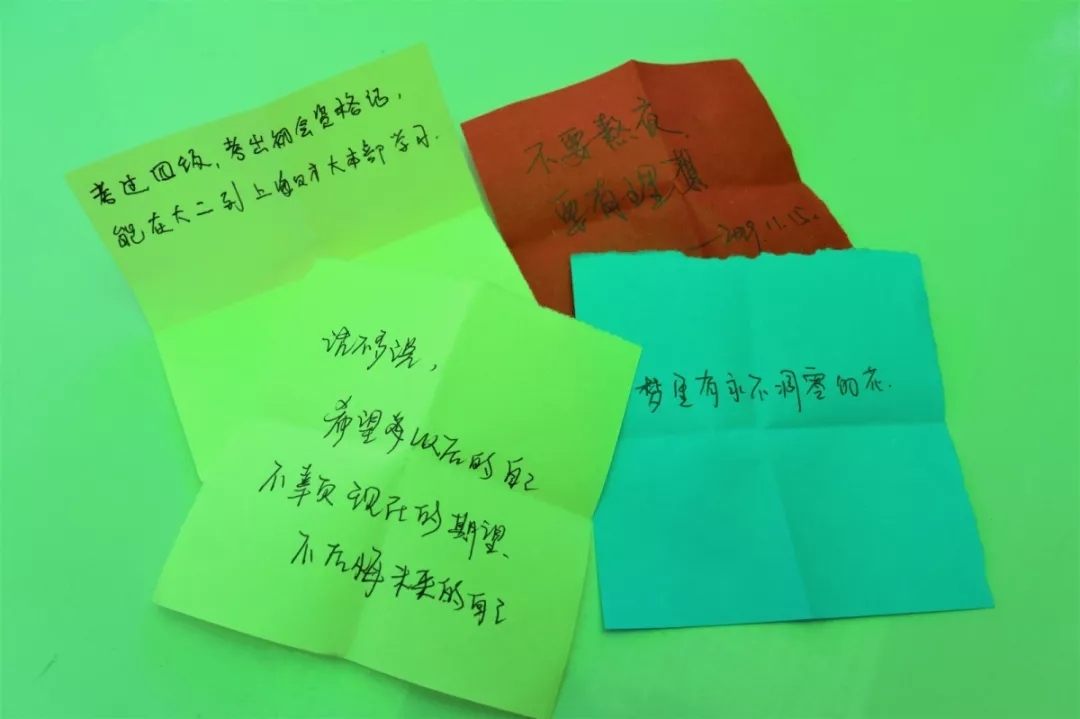 考过四级，考出初会资格证，
能在大二到上海大本部学习.
不要熬夜.
要有理想
—2019.11.15.
话不多说，
希望以后的自己
不辜负现在的期望、
不后悔未来的自己
梦里有永不凋零的花.